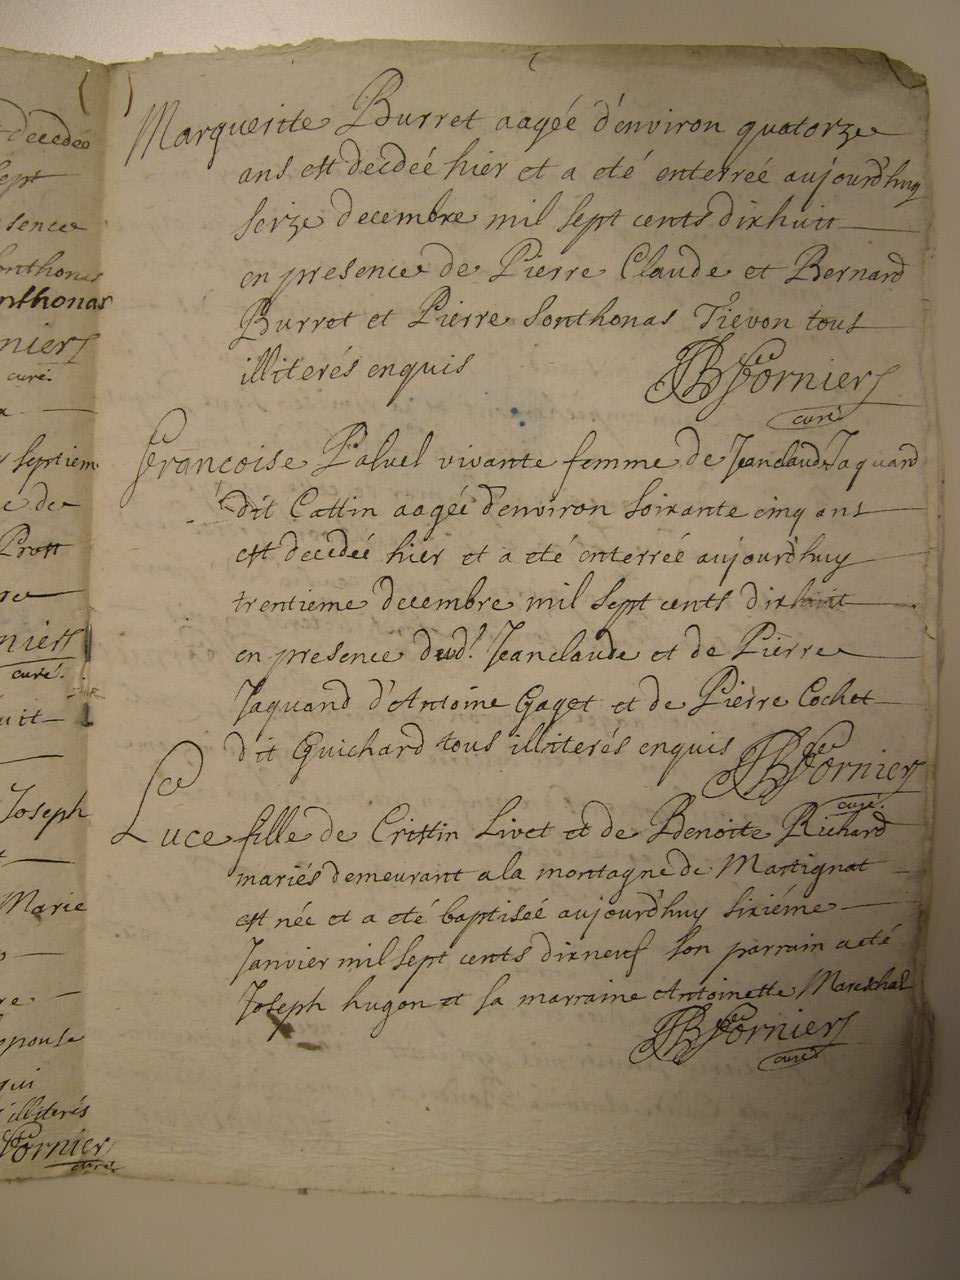 decedé
sept
sence
onthonas
onthonas
niers
curé.
septiem
e de
Prost
re
niers
curé.
uit
Joseph
Marie
re.
epouse
qui
illiterés
fornier
curé
Marguerite Burret aageé d'environ quatorze
ans est decedeé hier et a eté enterreé aujourd'huy
seize decembre mil sept cents dixhuit
en presence de Pierre Claude et Bernard
Burret et Pierre Sonthonas Tievon tous
illiterés enquis
JB Fornier
curé
Francoise Paluel vivante femme de Jeanclaude Jaquand
dit Cattin aageé d'environ soixante cinq ans
est decedeé hier et a eté enterreé aujourd'huy
trentieme decembre mil sept cents dixhuit
en presence dud.t Jeanclaude et de Pierre
Jaquand d'Antoine Gaget et de Pierre Cochet
dit Guichard tous illiterés enquis
JB Fornier
curé.
Luce fille de Cristin Livet et de Benoite Richard
mariés demeurant a la montagne de Martignat
est née et a eté baptiseé aujourd'huy sixiéme
Janvier mil sept cents dixneuf son parrain a eté
Joseph hugon et sa marraine Antoinette Mareschal
JB Fornier
curé